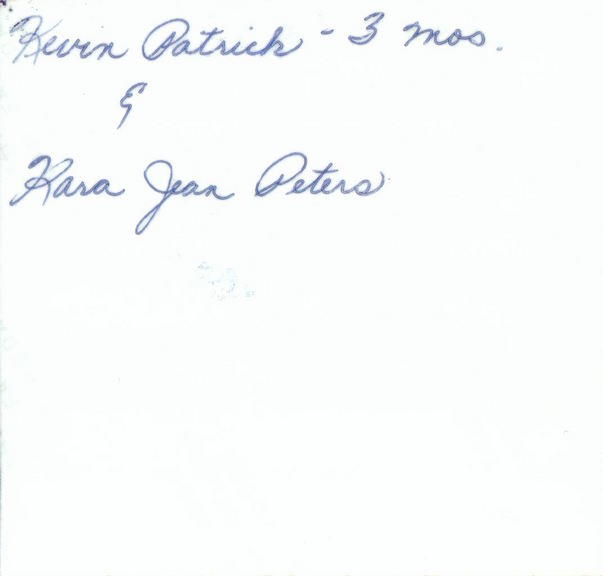 Kevin Patrick - 3 mos.
&
Kara Jean Peters